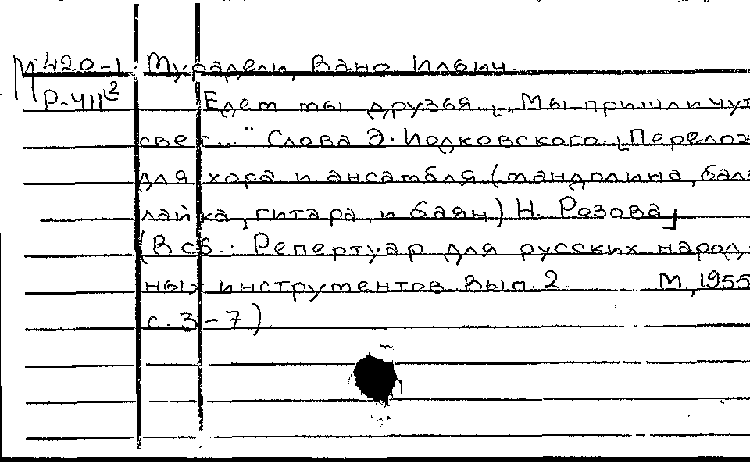 М420-1 Мурадели, Вано Ильич
Р-411² Едем мы друзья... „Мы пришли чут
свет..." Слова Э. Иодковского. [Перелож
для хора и ансамбля (мандолина, бала
лайка, гитара и баян) Н. Розова]
(В сб.: Репертуар для русских народ-
ных инструментов. Вып. 2 М, 1955
с. 3-7)